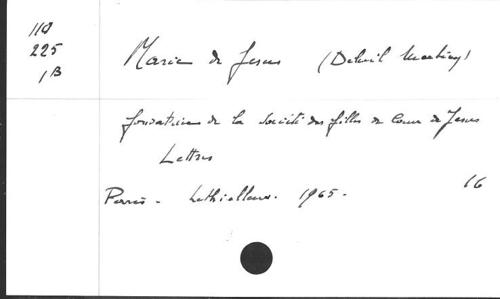 110
225
1B
Marie de Jesus (Deluil Martiny)
fondatrice de la Société des filles du Coeur de Jesus
Lettres
Paris - Lethielleux. 1965.
16